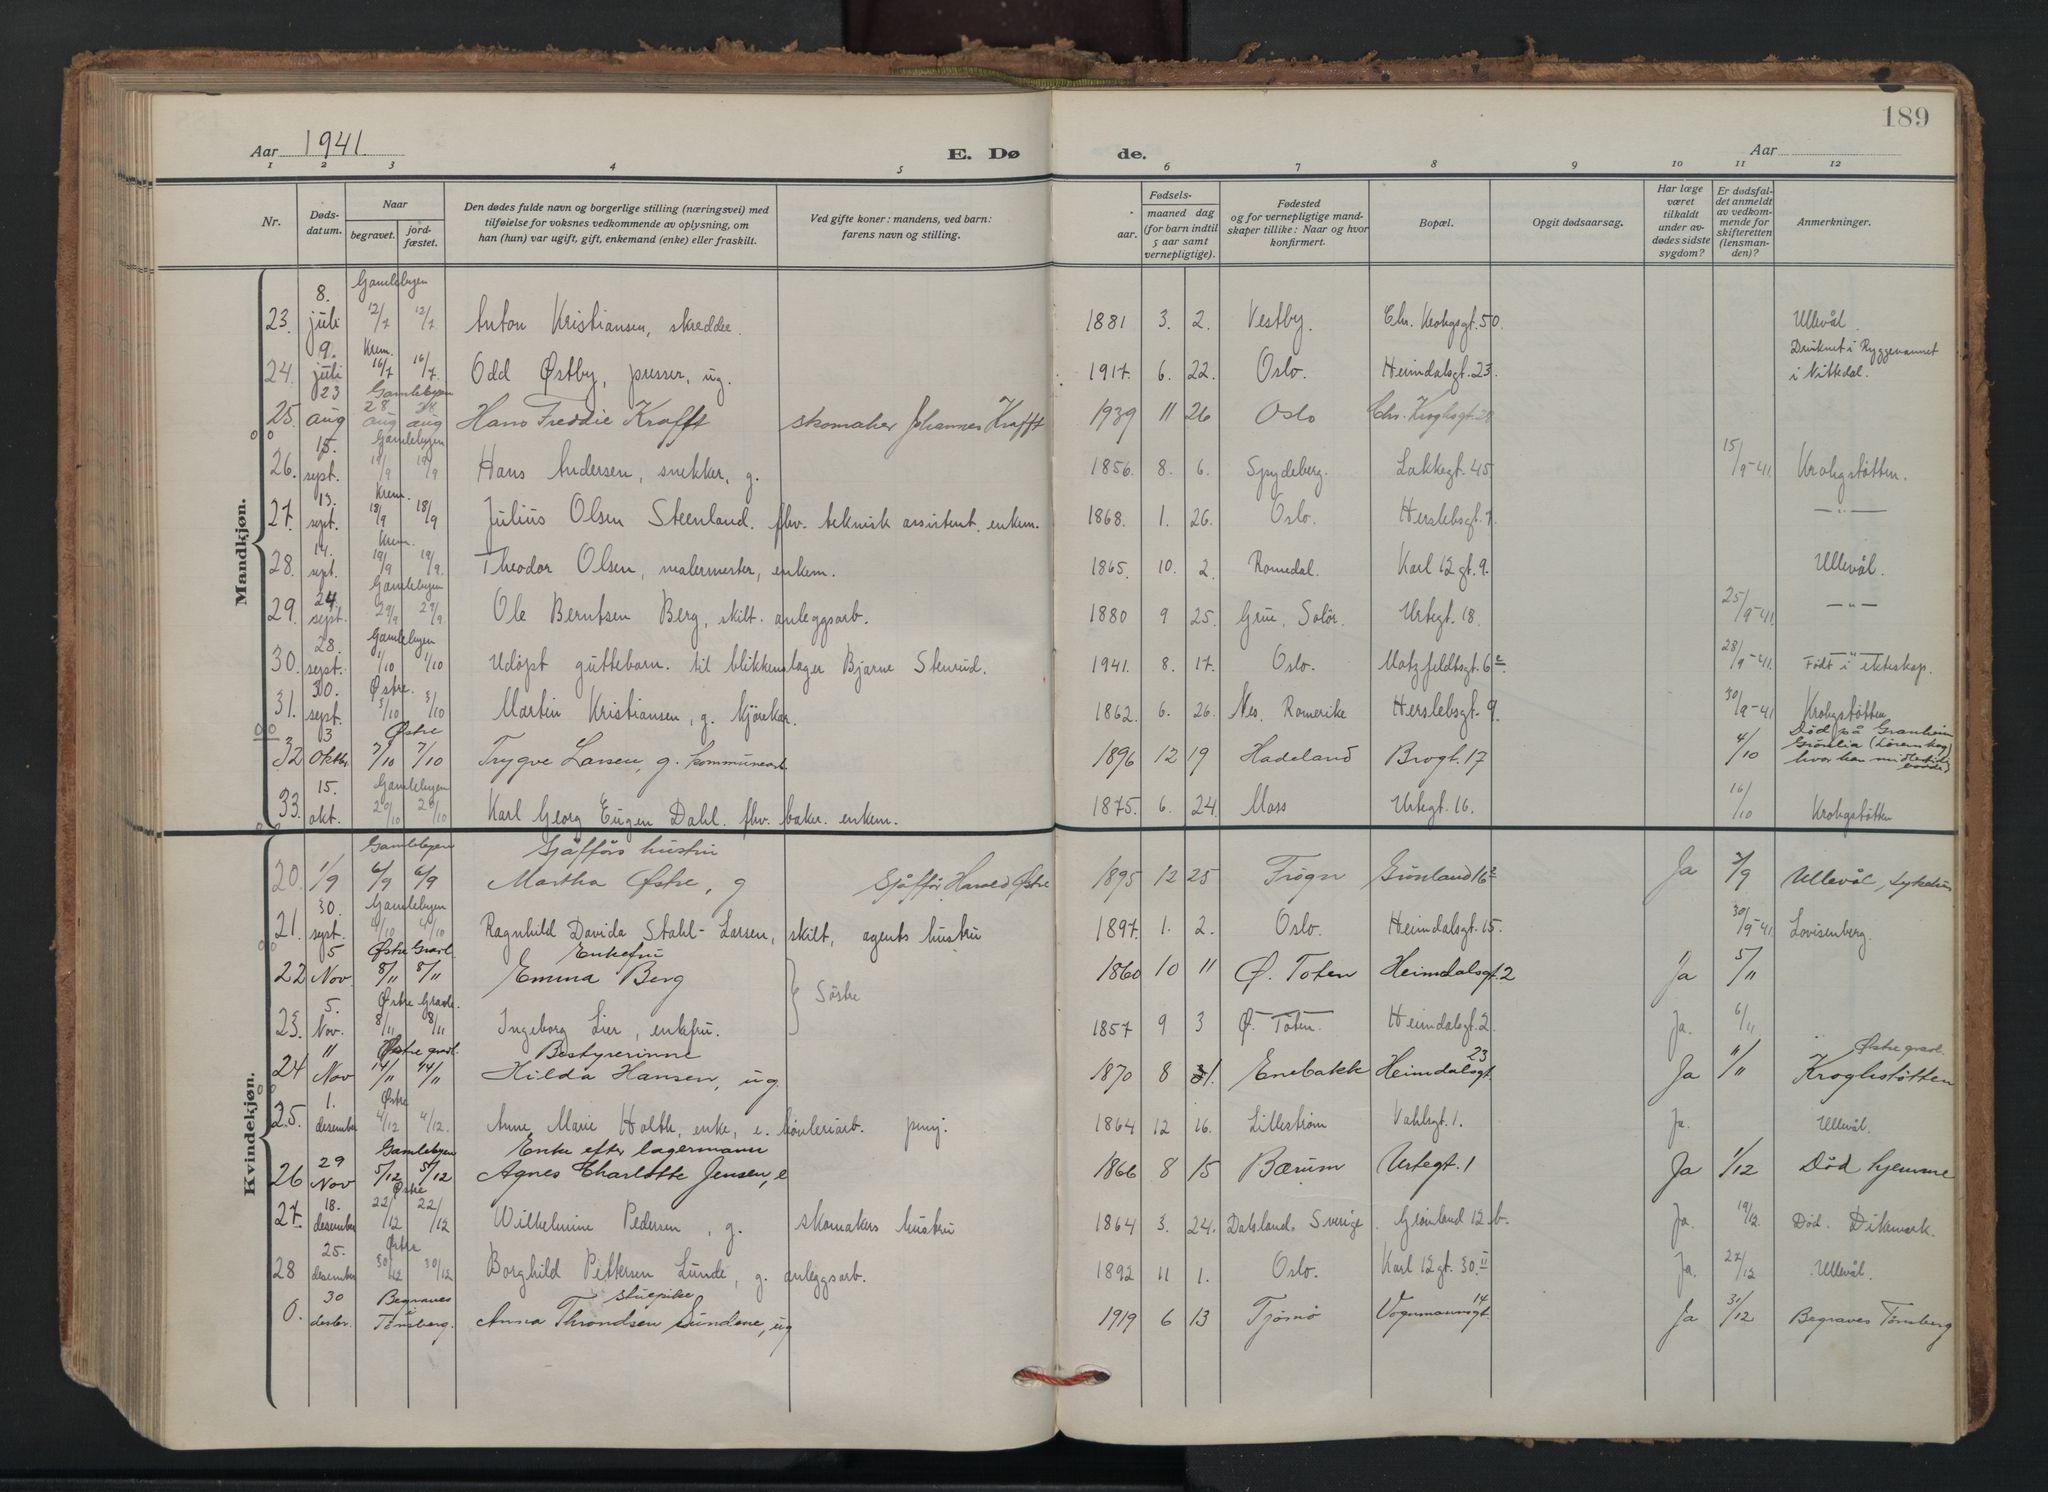 189
Aar 1941.
E. Dø de.
Aar
1 2 3 4 5 6 7 8 9 10 11 12
Nr. Døds-datum. Naar begravet. jord-fæstet. Den dødes fulde navn og borgerlige stilling (næringsvei) med tilføielse for voksnes vedkommende av oplysning, om han (hun) var ugift, gift, enkemand (enke) eller fraskilt. Ved gifte koner: mandens, ved barn: farens navn og stilling. Fødsels- aar. maaned dag (for barn indtil 5 aar samt vernepligtige). Fødested og for vernepligtige mandskaper tillike: Naar og hvor konfirmert. Bopæl. Opgit dødsaarsag. Har læge været tilkaldt under avdødes sidste sygdom? Er dødsfaldet anmeldt av vedkommende for skifteretten (lensmanden)? Anmerkninger.
Mandkjøn.
23. 8. juli Gamlebyen 12/7 12/7 Anton Kristiansen, skredder. 1881 3. 2. Vestby. Chr. Krohgsgt. 50. Ullevål.
24. 9. juli Krem. 16/7 16/7 Odd Østby, presser, ug. 1917. 6. 22. Oslo. Heimdalsgt. 23. Druknet i Ryggevannet i Nittedal.
25. 23 aug Gamlebyen 28 aug 28 aug Hans Freddie Krafft skomaker Johannes Krafft 1939 11 26 Oslo Chr. Kroghsgt. 28
26. 15. sept. Gamlebyen 19/9 19/9 Hans Andersen, snekker, g. 1856. 8. 6. Spydeberg. Lakkegt. 45 15/9-41. Krohgstøtten.
27. 13. sept. Krem. 18/9 18/9 Julius Olsen Steenland. fhv. teknisk assistent, enkem. 1868. 1. 26. Oslo. Herslebsgt. 7. —"—
28. 14. sept. Krem. 19/9 19/9. Theodor Olsen, malermester, enkem. 1865. 10. 2. Romedal. Karl 12 gt. 9. Ullevål.
29. 24. sept. Gamlebyen 29/9 29/9. Ole Berntsen Berg, skilt. anleggsarb. 1880 9 25. Grue, Solør. Urtegt. 18. 25/9-41. —"—
30. 28. sept. Gamlebyen 1/10 1/10 Udøpt guttebarn. til blikkenslager Bjarne Stenrud. 1941. 8. 17. Oslo. Motzfeldtsgt. 6 28/9-41. Født i ekteskap.
31. 30. sept. Østre. 3/10 3/10 Martin Kristiansen, g. kjørekar. 1862. 6. 26. Nes. Romerike Herslebsgt. 9. 30/9-41 Krohgstøtten
32 3 Oktbr. Østre 7/10 7/10 Trygve Larsen, g. kommunearb 1896 12 19 Hadeland Brogt. 17 4/10 Død på Granheim Grønlia (Lørenskog) hvor han midlertidig bodde
33. 15. okt. Gamlebyen 20/10 20/10 Karl Georg Eugen Dahl. fhv. baker. enkem. 1875. 6. 24. Moss Urtegt. 16. 16/10 Krohgstøtten
Kvindekjøn.
20. 1/9 Gamlebyen 6/9 6/9 Sjåfførs hustru Martha Østre, g Sjåffør Harald Østre 1895 12 25 Frogn Grønland 16 Ja 2/9 Ullevål, Sykehus
21. 30. sept. Gamlebyen 4/10 4/10 Ragnhild Davida Stahl-Larsen, skilt, agents hustru 1897. 1. 2. Oslo. Heimdalsgt. 15. 30/9-41 Lovisenberg.
22 5 Nov Østre Gravl. 8/11 8/11 Enkefru Emma Berg } Søstre 1860 10 11 Ø. Toten Heimdalsgt. 2 Ja 5/11
23. 5. Nov. Østre Gravl. 8/11 8/11 Ingeborg Lier, enkefru. 1857 9 3 Ø. Toten. Heimdalsgt. 2. Ja. 6/11
24 11 Nov Østre gravl. 14/11 14/11 Bestyrerinne Hilda Hansen, ug. 1870 8 31. Enebakk Heimdalsgt 23 Ja 11/11 Østre gravl. Kroghstøtten
25. 1. desember Østre 4/12 4/12. Anne Marie Holth, enke, e. 1864 12 16. Lillestrøm Vahlsgt. 1. Ja. Ullevål.
26 29 Nov Gamlebyen 5/12 5/12 Enke efter lagermann Agnes Charlotte Jensen, e 1866 8 15 Bærum Urtegt. 1 Ja 1/12 Død hjemme
27. 18. desember Østre 22/12 22/12 Wilhelmine Pedersen, g. skomakers hustru 1864 3. 24. Dalsland. Sverige. Grønland 12 b. Ja. 19/12. Død. Dikemark.
28 25. desember Østre 30/12 30/12 Borghild Pettersen Lunde, g. anleggsarb. 1892 11 1. Oslo. Karl 12 gt. 30. II Ja. 27/12 Ullevål.
0. 30 desbr. Begraves i Tønsberg. stuepike Anna Throndsen Sundene, ug 1919 6 13 Tjømø Vognmannsgt. 14 Ja 31/12 Begraves Tønsberg